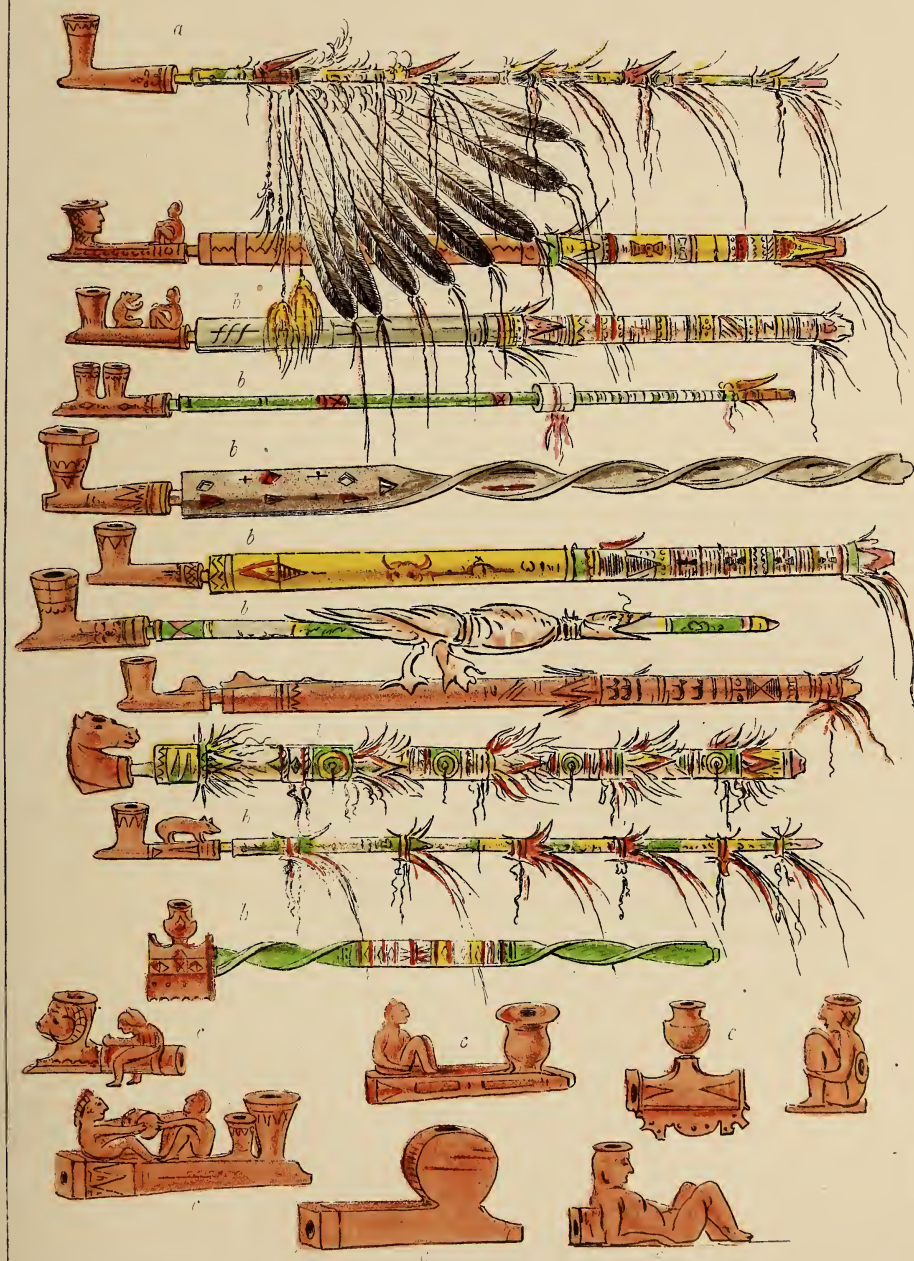 a
b
b
b
b
b
b
b
c c c